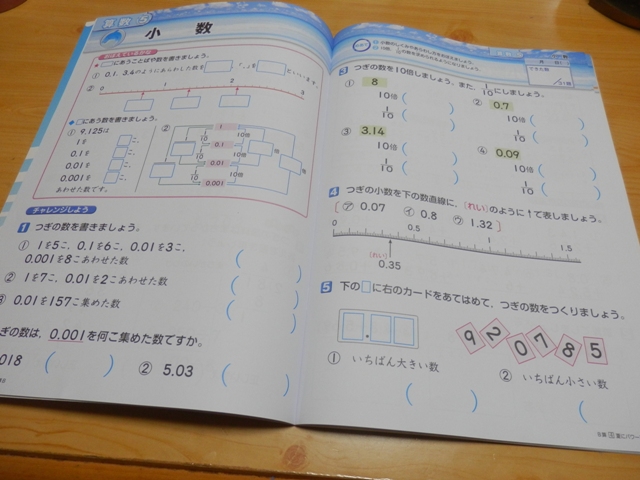 算数 5
小数
□にあうことばや数を書きましょう。
① 0.1、3.4のようにあらわした数を
といいます。
②
0 1 2 3
□にあう数を書きましょう。
① 9.125は
1を
0.1を
0.01を
0.001を
あわせた数です。
②
1
1/10 10倍
0.1
1/10 10倍
0.01
1/10 10倍
0.001
チャレンジしよう
1 つぎの数を書きましょう。
① 1を5こ、0.1を6こ、0.01を3こ、
0.001を8こあわせた数
② 1を7こ、0.01を2こあわせた数
0.01を157こ集めた数
ぎの数は、0.001を何こ集めた数ですか。
018
② 5.03
3 つぎの数を10倍しましょう。また、1/10にしましょう。
① 8
10倍
1/10
② 0.7
10倍
1/10
③ 3.14
10倍
1/10
④ 0.09
10倍
1/10
4 つぎの小数を下の数直線に、(れい)のように↑で表しましょう。
㋐ 0.07 ㋑ 0.8 ㋒ 1.32
0 0.5 1 1.5
(れい)
0.35
5 下の□に右のカードをあてはめて、つぎの数をつくりましょう。
.
9 2 0 7 8 5
① いちばん大きい数
② いちばん小さい数